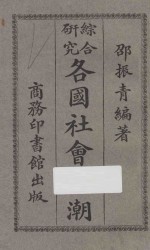 邵振青編著
綜合研究
各國社會
潮
商務印書館出版